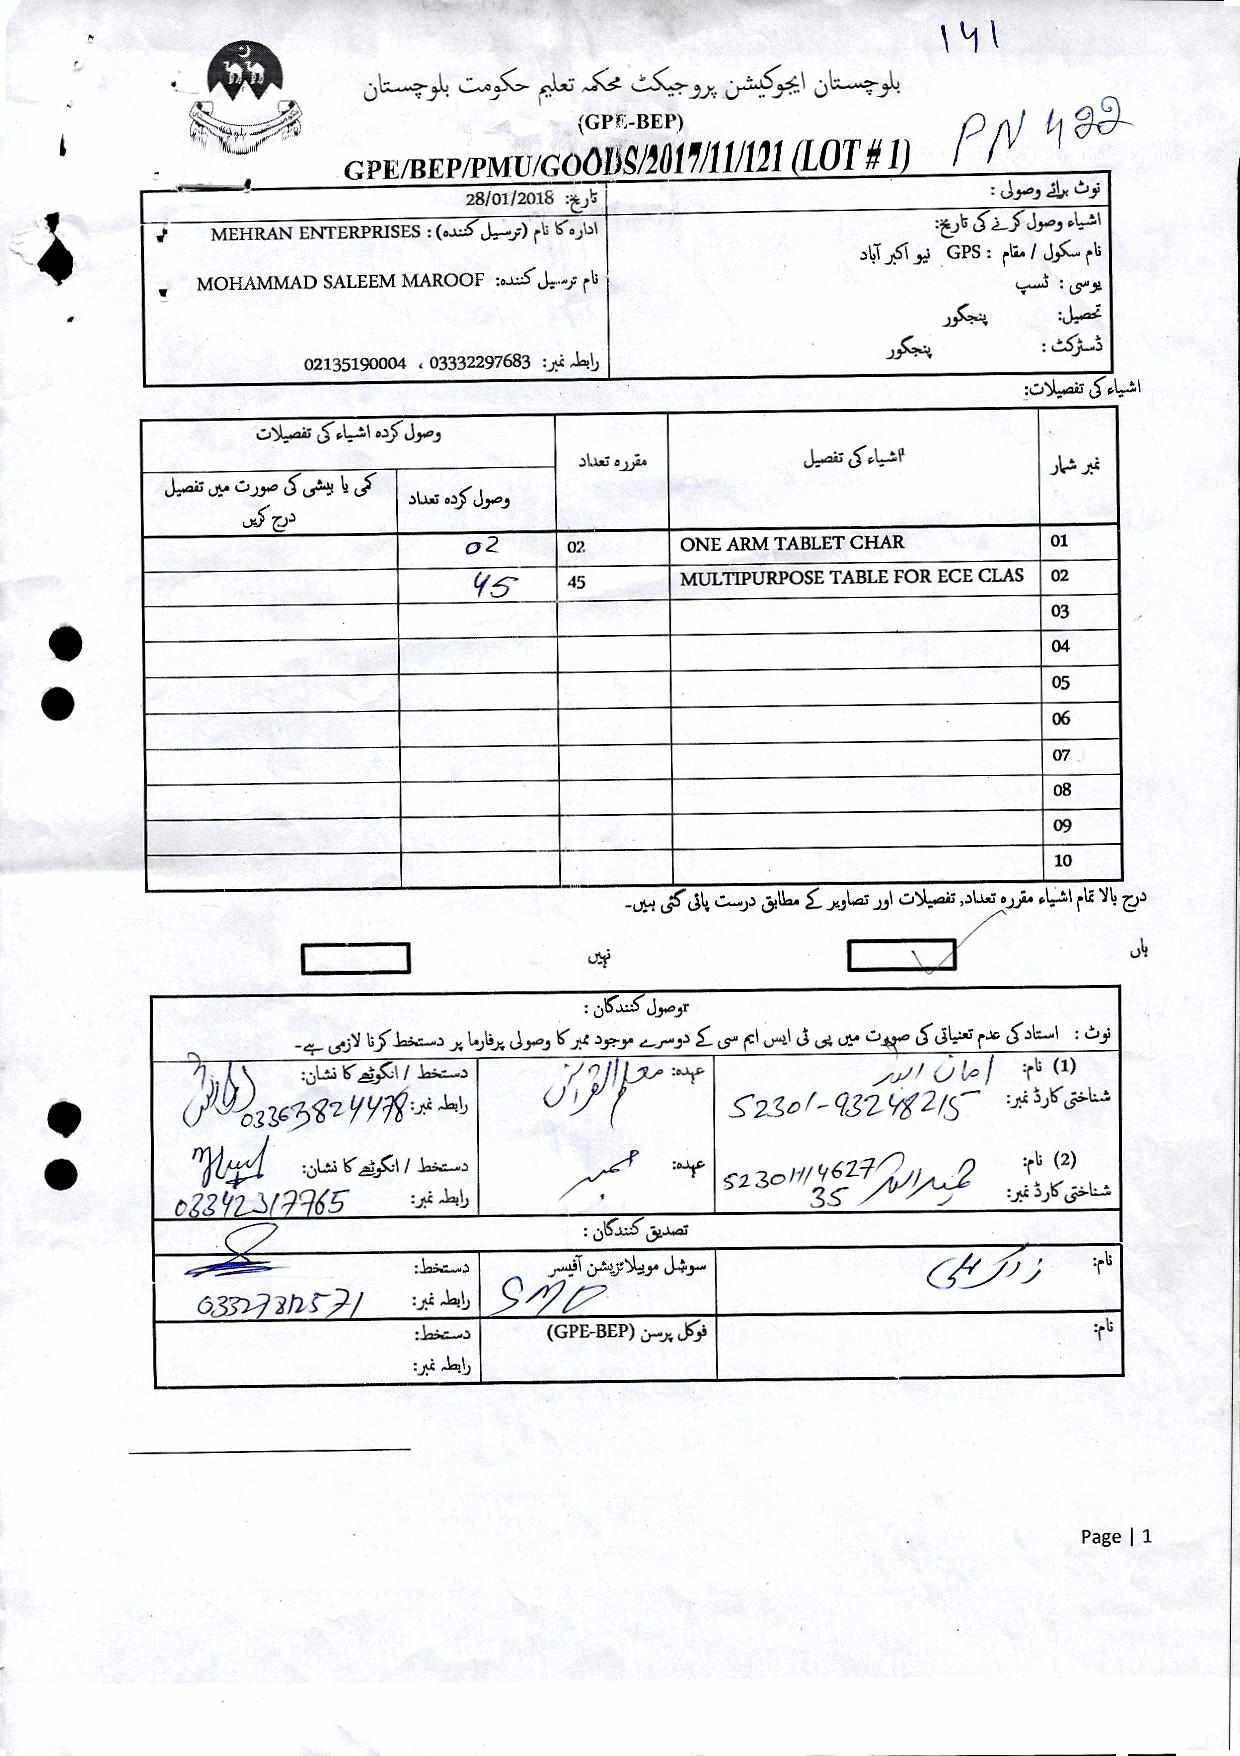 141
بلوچستان ایجوکیشن پروجیکٹ محکمہ تعلیم حکومت بلوچستان
(GPE-BEP)
PN 422
GPE/BEP/PMU/GOODS/2017/11/121 (LOT # 1)
نوٹ برائے وصولی :
تاریخ: 28/01/2018
اشیاء وصول کرنے کی تاریخ:
ادارہ کا نام (ترسیل کنندہ) : MEHRAN ENTERPRISES
نام سکول / مقام : GPS نیو اکبر آباد
نام ترسیل کنندہ: MOHAMMAD SALEEM MAROOF
یوسی : ٹسپ
تحصیل: پنجگور
ڈسٹرکٹ : پنجگور
رابطہ نمبر: 03332297683 ، 02135190004
اشیاء کی تفصیلات:
نمبر شمار اشیاء کی تفصیل مقررہ تعداد وصول کردہ اشیاء کی تفصیلات
وصول کردہ تعداد کمی یا بیشی کی صورت میں تفصیل درج کریں
01 ONE ARM TABLET CHAR 02 02
02 MULTIPURPOSE TABLE FOR ECE CLAS 45 45
03
04
05
06
07
08
09
10
درج بالا تمام اشیاء مقررہ تعداد, تفصیلات اور تصاویر کے مطابق درست پائی گئی ہیں۔
ہاں نہیں
وصول کنندگان :
نوٹ : استاد کی عدم تعنیاتی کی صورت میں پی ٹی ایس ایم سی کے دوسرے موجود ممبر کا وصولی پرفارما پر دستخط کرنا لازمی ہے۔
(1) نام: امان اللہ عہدہ: معلم القرآن دستخط / انگوٹھے کا نشان:
شناختی کارڈ نمبر: 52301-93248215 رابطہ نمبر: 03363824478
(2) نام: عہدہ: ممبر دستخط / انگوٹھے کا نشان:
شناختی کارڈ نمبر: 35 رابطہ نمبر: 03342317765
تصدیق کنندگان :
نام: سوشل موبیلائزیشن آفیسر دستخط:
SMO رابطہ نمبر:
نام: فوکل پرسن (GPE-BEP) دستخط:
رابطہ نمبر:
Page | 1